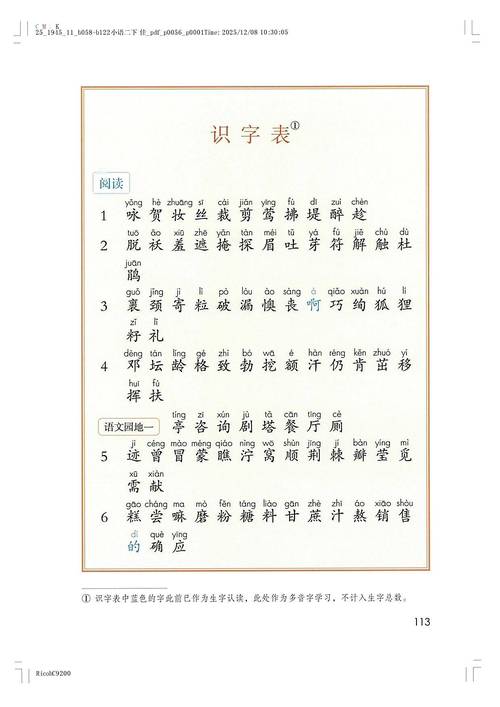 C M Y K
25_1945_11_b058-b122小语二下 佳_pdf_p0056_p0001Time: 2025/12/08 10:30:05
识字表①
阅读
yǒng hè zhuāng sī cái jiǎn yīng fú dī zuì chèn
1 咏 贺 妆 丝 裁 剪 莺 拂 堤 醉 趁
tuō ǎo xiū zhē yǎn tàn méi tǔ yá fú jiě chù dù
2 脱 袄 羞 遮 掩 探 眉 吐 芽 符 解 触 杜
juān
鹃
guǒ jǐng jì lì pò lòu ào sàng à qiǎo xuàn hú lí
3 裹 颈 寄 粒 破 漏 懊 丧 啊 巧 绚 狐 狸
zǐ lǐ
籽 礼
dèng tán líng gé zhì bó wā é hàn réng kěn zhuó yí
4 邓 坛 龄 格 致 勃 挖 额 汗 仍 肯 茁 移
huī fú
挥 扶
tíng zī xún jù tǎ cān tīng cè
语文园地一 亭 咨 询 剧 塔 餐 厅 厕
jì céng mào méng qiáo nìng wō shùn jīng jí bàn yíng mì
5 迹 曾 冒 蒙 瞧 泞 窝 顺 荆 棘 瓣 莹 觅
xū xiàn
需 献
gāo cháng ma mò fěn táng liào gān zhè zhī áo xiāo shòu
6 糕 尝 嘛 磨 粉 糖 料 甘 蔗 汁 熬 销 售
dí què yīng
的 确 应
① 识字表中蓝色的字此前已作为生字认读，此处作为多音字学习，不计入生字总数。
113
RicohC9200